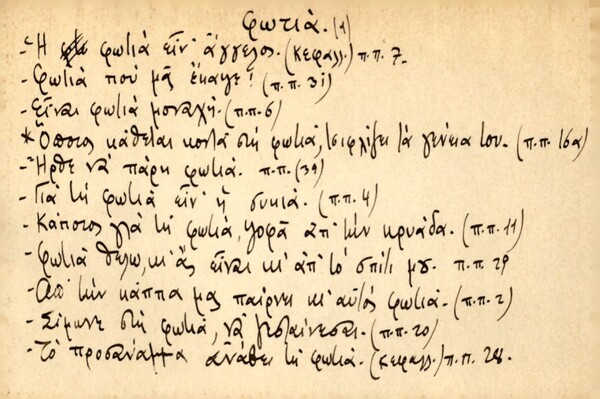 φωτιά. (1)
- Ἡ φωτιά εἶν' ἄγγελος. (Κεφαλλ.) π.π. 7.
- Φωτιά πού μᾶς ἔκαψε! (π.π. 31)
- Εἶναι φωτιά μοναχή. (π.π. 6)
* Ὅποιος κάθεται κοντά στή φωτιά, τσιφλίζει τά γένεια του. (π.π. 16α)
- Ἦρθε νά πάρῃ φωτιά. π.π. (34)
- Γιά τή φωτιά εἶν' ἡ συκιά. (π.π. 4)
- Κάποιος γιά τή φωτιά, ψοφᾶ ἀπ' τήν κρυάδα. (π.π. 11)
- Φωτιά θέλω, κι' ἄς εἶναι κι' ἀπ' τό σπίτι μου. π.π. 29
- Ἀπ' τήν κάππα μας παίρνει κι' αὐτός φωτιά. (π.π. 2)
- Σίμωνε στή φωτιά, νά ζεσταίνεσαι. (π.π. 20)
- Τό προσάναμμα ἀνάθει τή φωτιά. (Κεφαλλ.) π.π. 28.